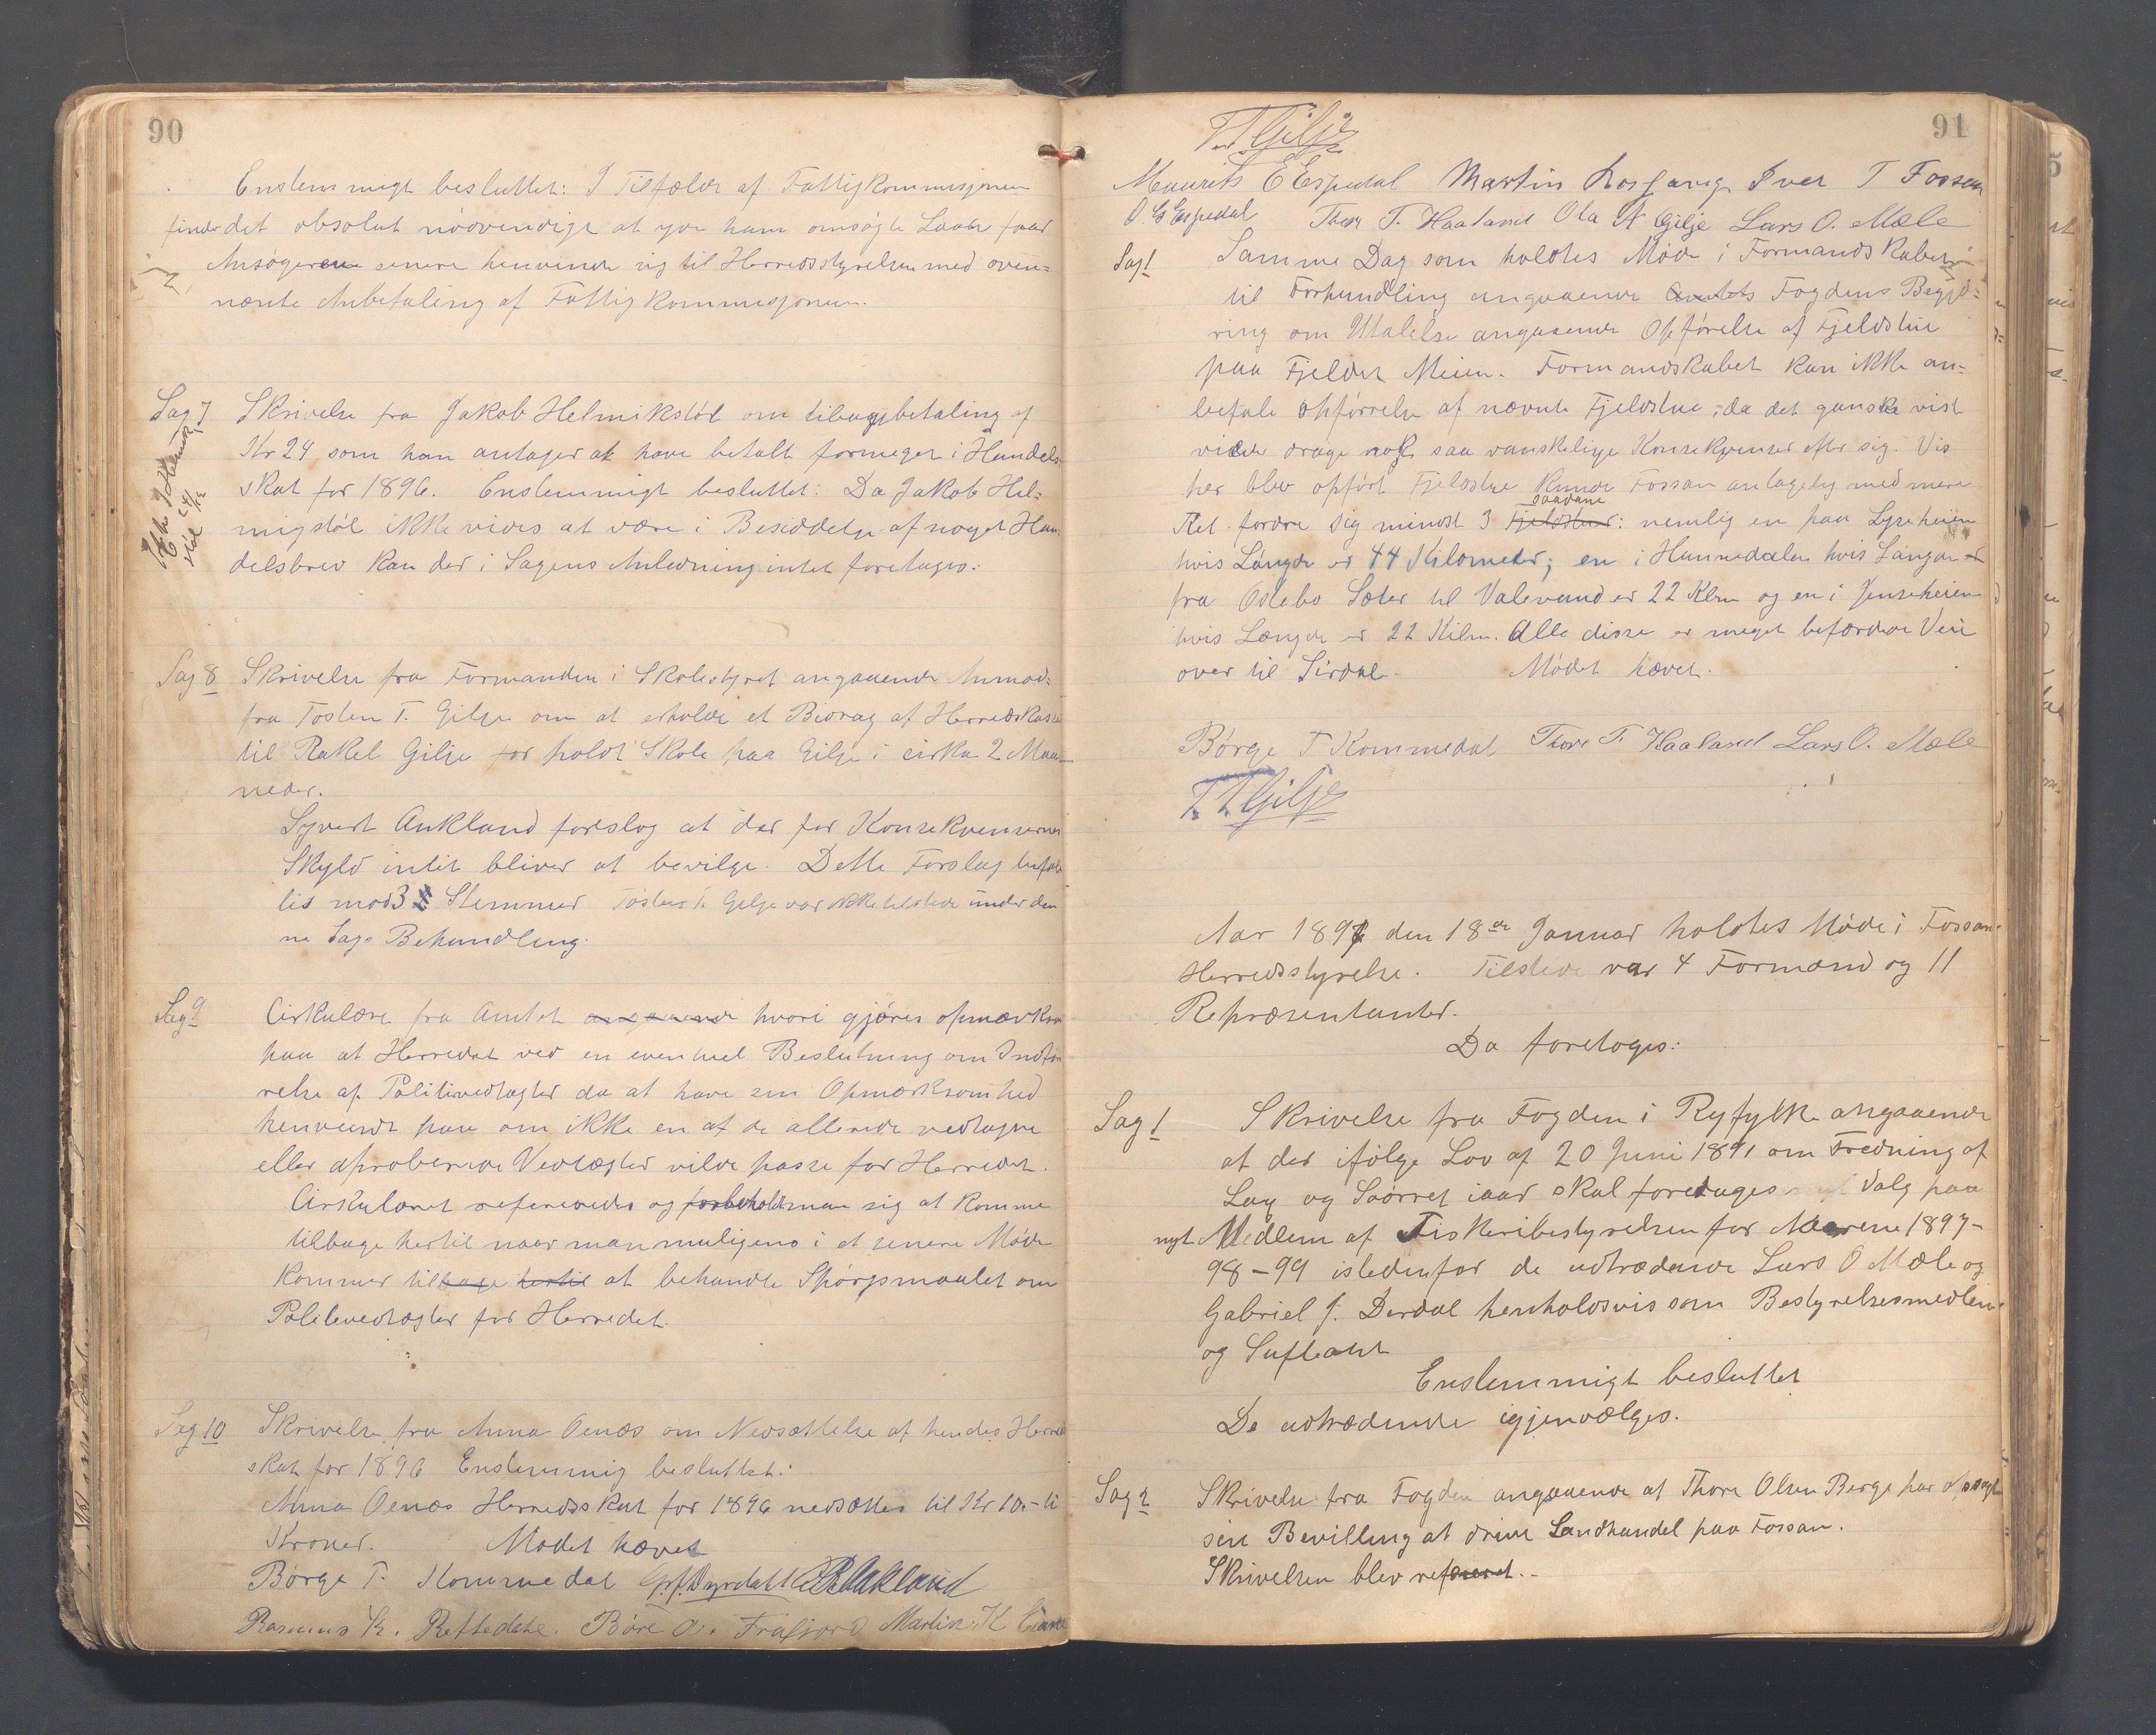 90
Enstemmigt besluttet: I Tilfælde af Fattigkommisjonen
finder det absolut nødvendige at yde ham omsøgte Laan faar
Ansøgeren senere henvende sig til Herredsstyrelsen med oven=
nævnte Anbefaling af Fattigkommisjonen.
Sag 7 Skrivelse fra Jakob Helmikstöl om tilbagebetaling af
Kr 24 som han antager at have betalt formeget i Handels
skat for 1896. Enstemmigt besluttet: Da Jakob Hel=
migstöl ikke vides at være i Besiddelse af noget Han
delsbrev kan der i Sagens Anledning intet foretages.
Sag 8 Skrivelse fra Formanden i Skolestyret angaaende Anmod=
fra Tosten T. Gilje om at erholde et Bidrag af Herredskassen
til Rakel Gilje for holdt Skole paa Gilje i cirka 2 Maa
neder.
Syvert Aukland foreslog at der for Konsekvensernes
Skyld intet bliver at bevilge. Dette Forslag befat
tes mod 3 Stemmer Tosten T. Gilje var ikke tilstede under den
ne Sags Behandling.
Sag 9 Cirkulære fra Amtet angaaende hvori gjøres opmærksom
paa at Herredet ved en eventuel Beslutning om Indfø
relse af Politivedtægter da at have sin Opmærksomhed
henvendt paa om ikke en af de allerede vedtagne
eller aproberede Vedtægter vilde passe for Herredet.
Cirkulæret refereredes og forbeholdt man sig at komme
tilbage hertil naar man muligens i et senere Møde
kommer tilbage hertil at behandle Spørgsmaalet om
Politivedtægter for Herredet.
Sag 10 Skrivelse fra Anna Oenæs om Nedsættelse af hendes Herreds
skat for 1896 Enstemmig besluttet:
Anna Oenæs Herredsskat for 1896 nedsættes til Kr 10 - ti
Kroner. Mødet hævet
Børge T. Kommedal
Rasmus K. Reftedale. Børe O. Frafjord Martin K.
91
T. T. Gilje
Maurits E Espedal Martin Iver T Fossan
O. G. Espedal Thore T. Haaland Ola N Gilje Lars O. Mæle
Sag 1 Samme Dag som holdtes Møde i Formandskabet
til Forhandling angaaende Amtets Fogdens Begjæ=
ring om Utalelse angaaende Opførelse af Fjeldstue
paa Fjeldet Meien. Formandskabet kan ikke an=
befale opførelse af nævnte Fjeldstue, da det ganske vist
vilde drage nok saa vanskelige Konsekvenser efter sig. Vis
her blev opført Fjeldstue kunde Fossan antagelig med mere
saadane
Ret fordre sig mindst 3 Fjeldstuer: nemlig en paa Lyseheien
hvis Længde er 44 Kilometer; en i Hunnedalen hvis Længde er
fra Oslebo Sæter til Valevand er 22 Klm og en i Jenseheien
hvis Længde er 22 Kilm. Alle disse er meget befærdede Veie
over til Sirdal. Mødet hævet.
Børge T Kommedal Thore T. Haaland Lars O. Mæle
T. T. Gilje
Aar 1897 den 18de Januar holdtes Møde i Fossan
Herredsstyrelse. Tilstede var 4 Formænd og 11
Repræsentanter.
Da foretoges:
Sag 1 Skrivelse fra Fogden i Ryfylke angaaende
at der ifølge Lov af 20 Juni 1891 om Fredning af
Lax og Søørret iaar skal foretages Valg paa
nyt Medlem af Fiskeribestyrelsen for Aarene 1897-
98-99 istedenfor de udtrædende Lars O Mæle og
Gabriel J. Dirdal henholdsvis som Bestyrelsesmedlem
og Supleant
Enstemmigt besluttet
De udtrædende igjenvælges.
Sag 2 Skrivelse fra Fogden angaaende at Thore Olsen Berge har opsagt
sin Bevilling at drive Landhandel paa Fossan.
Skrivelsen blev referet.